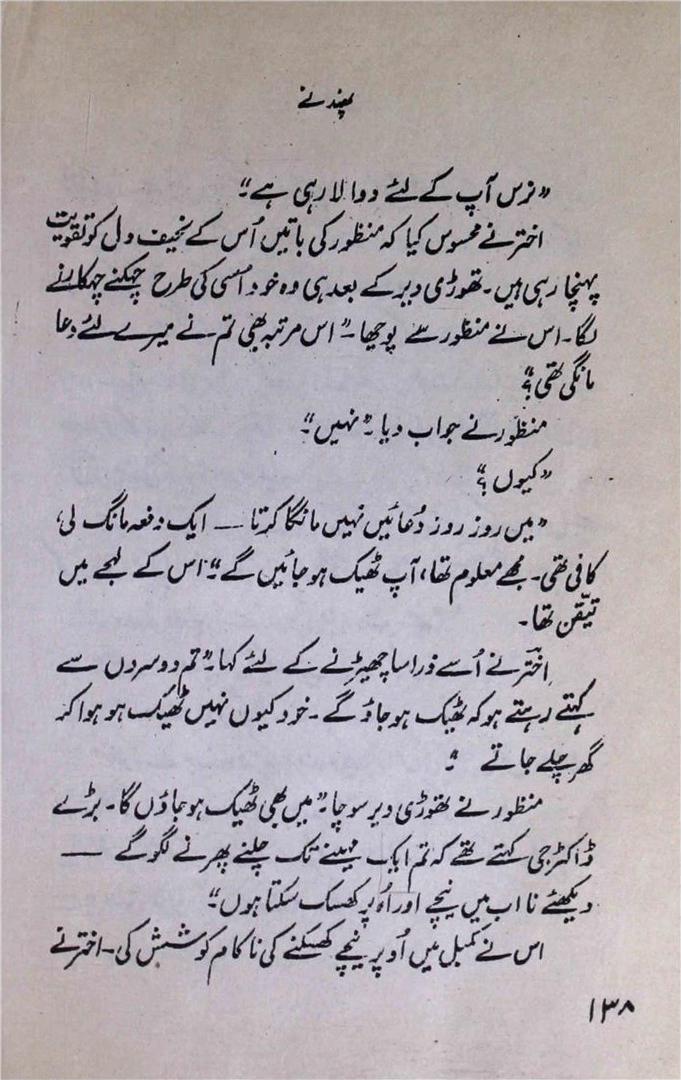 پھندنے
"نرس آپ کے لئے دوا لا رہی ہے"۔
اختر نے محسوس کیا کہ منظور کی باتیں اُس کے نحیف دل کو تقویت
پہنچا رہی ہیں۔ تھوڑی دیر کے بعد ہی وہ خود اُسی کی طرح چہکنے چہکانے
لگا۔ اس نے منظور سے پوچھا۔ "اس مرتبہ بھی تم نے میرے لئے دعا
مانگی تھی؟"
منظور نے جواب دیا۔ "نہیں"۔
"کیوں؟"
"میں روز روز دُعائیں نہیں مانگا کرتا — ایک دفعہ مانگ لی،
کافی تھی۔ مجھے معلوم تھا، آپ ٹھیک ہو جائیں گے"۔ اس کے لہجے میں
تیقّن تھا۔
اختر نے اُسے ذرا سا چھیڑنے کے لئے کہا۔ "تم دوسردں سے
کہتے رہتے ہو کہ ٹھیک ہو جاؤ گے۔ خود کیوں نہیں ٹھیک ہو ہوا کر
گھر چلے جاتے"۔
منظور نے تھوڑی دیر سوچا۔ "میں بھی ٹھیک ہو جاؤں گا۔ بڑے
ڈاکٹر جی کہتے تھے کہ تم ایک مہینے تک چلنے پھرنے لگو گے —
دیکھئے نا اب میں نیچے اور اُوپر کھسک سکتا ہوں"۔
اس نے کمبل میں اُوپر نیچے کھسکنے کی ناکام کوشش کی۔ اختر نے
۱۳۸